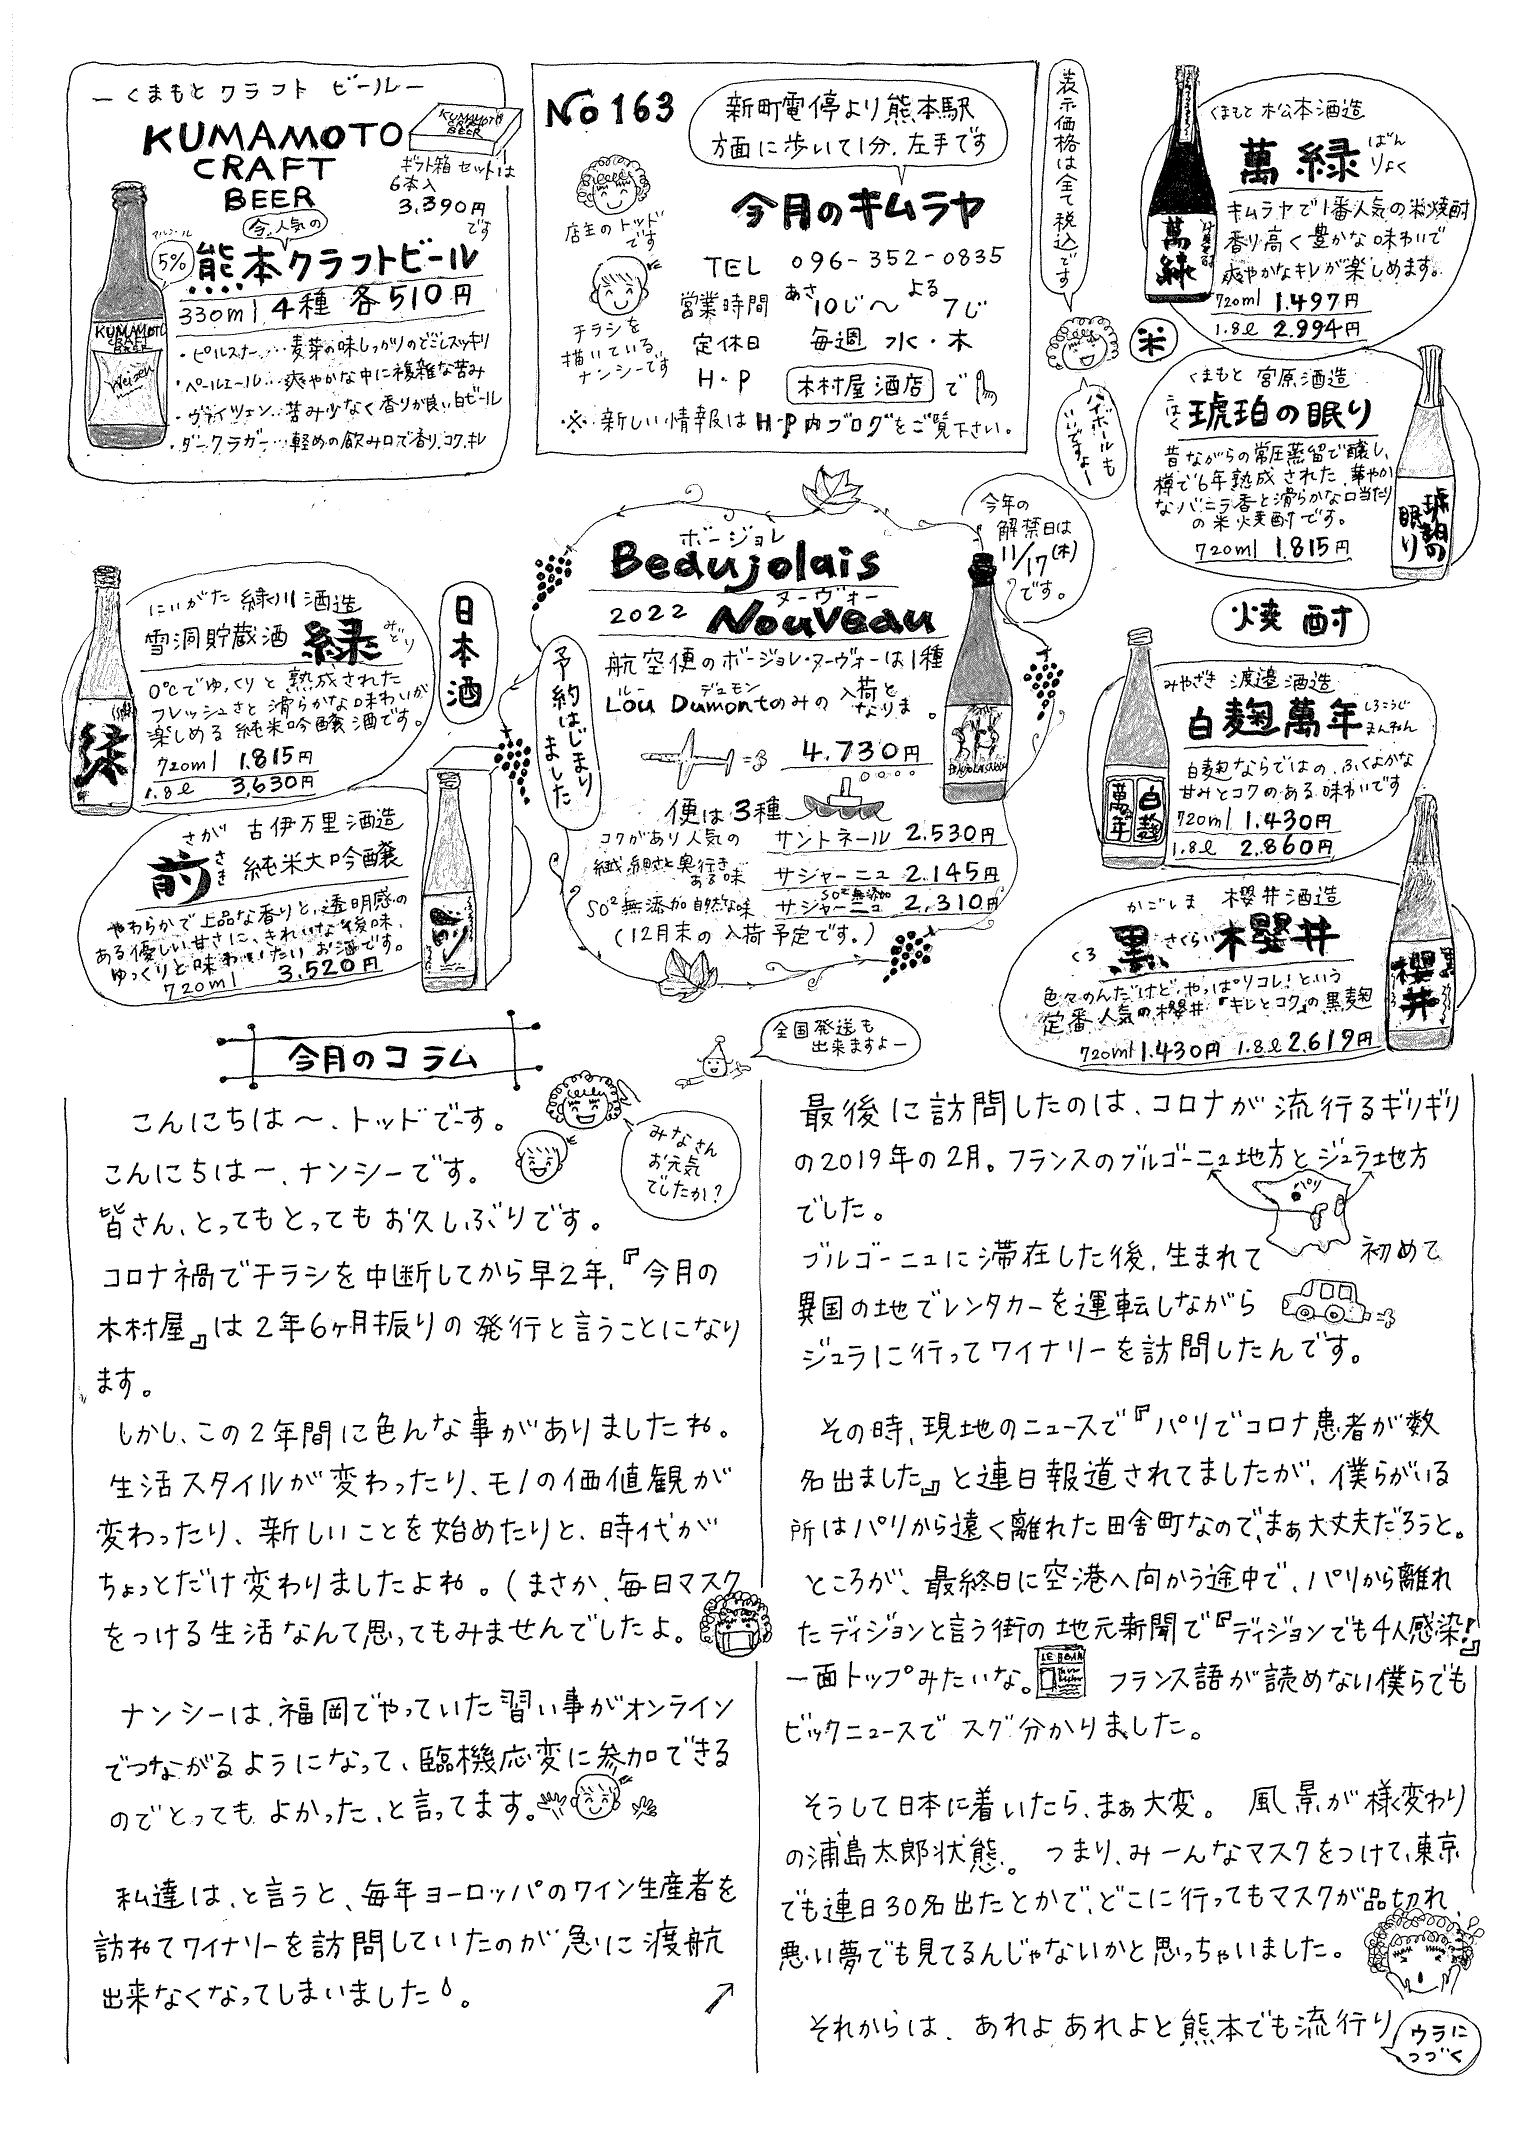 ーくまもとクラフト ビールー
KUMAMOTO
CRAFT
BEER
KUMAMOTO
CRAFT
BEER
ギフト箱 セットは
6本入
3,390円
です
今、人気の
アルコール
5%
熊本クラフトビール
330ml 4種 各510円
・ピルスナー…麦芽の味しっかりのどごしスッキリ
・ペールエール…爽やかな中に複雑な苦み
・ヴァイツェン…苦み少なく香りが良い白ビール
・ダークラガー…軽めの飲み口で香り、コク、キレ
KUMAMOTO
CRAFT
BEER
Weizen
No 163
新町電停より熊本駅
方面に歩いて1分、左手です
今月のキムラヤ
店主のトッド
です
チラシを
描いている
ナンシーです
TEL 096-352-0835
営業時間 あさ10じ〜よる7じ
定休日 毎週 水・木
H・P 木村屋酒店 で
※新しい情報はH・P内ブログをご覧下さい。
表示価格は全て税込です
くまもと 松本酒造
萬緑 ばんりょく
キムラヤで1番人気の米焼酎
香り高く豊かな味わいで
爽やかなキレが楽しめます。
720ml 1.497円
1.8ℓ 2.994円
萬緑
米
ハイボールも
いいですよー
くまもと 宮原酒造
こはく
琥珀の眠り
昔ながらの常圧蒸留で醸し、
樽で6年熟成された、華やか
なバニラ香と滑らかな口当たり
の米焼酎です。
720ml 1.815円
琥珀の
眠り
焼酎
日本酒
にいがた 緑川酒造
雪洞貯蔵酒 緑 みどり
0℃でゆっくりと熟成された
フレッシュさと滑らかな味わいが
楽しめる純米吟醸酒です。
720ml 1.815円
1.8ℓ 3,630円
緑
さが 古伊万里酒造
前 さき 純米大吟醸
やわらかで上品な香りと、透明感の
ある優しい甘さに、きれいな後味、
ゆっくりと味わいたいお酒です。
720ml 3.520円
前
ボージョレ
Beaujolais
2022 ヌーヴォー
Nouveau
今年の
解禁日は
11/17(木)
です。
予約はじまり
ました
航空便のボージョレ・ヌーヴォーは1種
ルー デュモン
Lou Dumontのみの入荷と
なりま 。
4.730円
便は3種
コクがあり人気の サントネール 2.530円
繊細さと奥行き
ある味 サジャーニュ 2.145円
SO²無添加 自然な味 SO²無添加 サジャーニュ 2.310円
(12月末の入荷予定です。)
みやざき 渡邉酒造
白麹萬年 しろこうじ まんねん
白麹ならではの、ふくよかな
甘みとコクのある味わいです
720ml 1.430円
1.8ℓ 2.860円
白麹
萬年
かごしま 櫻井酒造
くろ さくらい
黒櫻井
色々のんだけど、やっぱりコレ!という
定番人気の櫻井『キレとコク』の黒麹
720ml 1.430円 1.8ℓ 2.619円
黒
櫻井
全国発送も
出来ますよー
今月のコラム
こんにちは〜、トッドです。
こんにちは〜、ナンシーです。
みなさん
お元気
でしたか?
皆さん、とってもとってもお久しぶりです。
コロナ禍でチラシを中断してから早2年、『今月の
木村屋』は2年6ヶ月振りの発行と言うことになり
ます。
しかし、この2年間に色んな事がありましたね。
生活スタイルが変わったり、モノの価値観が
変わったり、新しいことを始めたりと、時代が
ちょっとだけ変わりましたよね。(まさか、毎日マスク
をつける生活なんて思ってもみませんでしたよ。
ナンシーは、福岡でやっていた習い事がオンライン
でつながるようになって、臨機応変に参加できる
のでとってもよかった、と言ってます。
私達は、と言うと、毎年ヨーロッパのワイン生産者を
訪ねてワイナリーを訪問していたのが急に渡航
出来なくなってしまいました。
最後に訪問したのは、コロナが流行るギリギリ
の2019年の2月。フランスのブルゴーニュ地方とジュラ地方
でした。
パリ
ブルゴーニュに滞在した後、生まれて初めて
異国の地でレンタカーを運転しながら
ジュラに行ってワイナリーを訪問したんです。
その時、現地のニュースで『パリでコロナ患者が数
名出ました』と連日報道されてましたが、僕らがいる
所はパリから遠く離れた田舎町なので、まぁ大丈夫だろうと。
ところが、最終日に空港へ向かう途中で、パリから離れ
たディジョンと言う街の地元新聞で『ディジョンでも4人感染!』
一面トップみたいな。フランス語が読めない僕らでも
ビックニュースでスグ分かりました。
そうして日本に着いたら、まぁ大変。風景が様変わり
の浦島太郎状態。つまり、み一んなマスクをつけて、東京
でも連日30名出たとかで、どこに行ってもマスクが品切れ、
悪い夢でも見てるんじゃないかと思っちゃいました。
それからは、あれよあれよと熊本でも流行り
ウラに
つづく